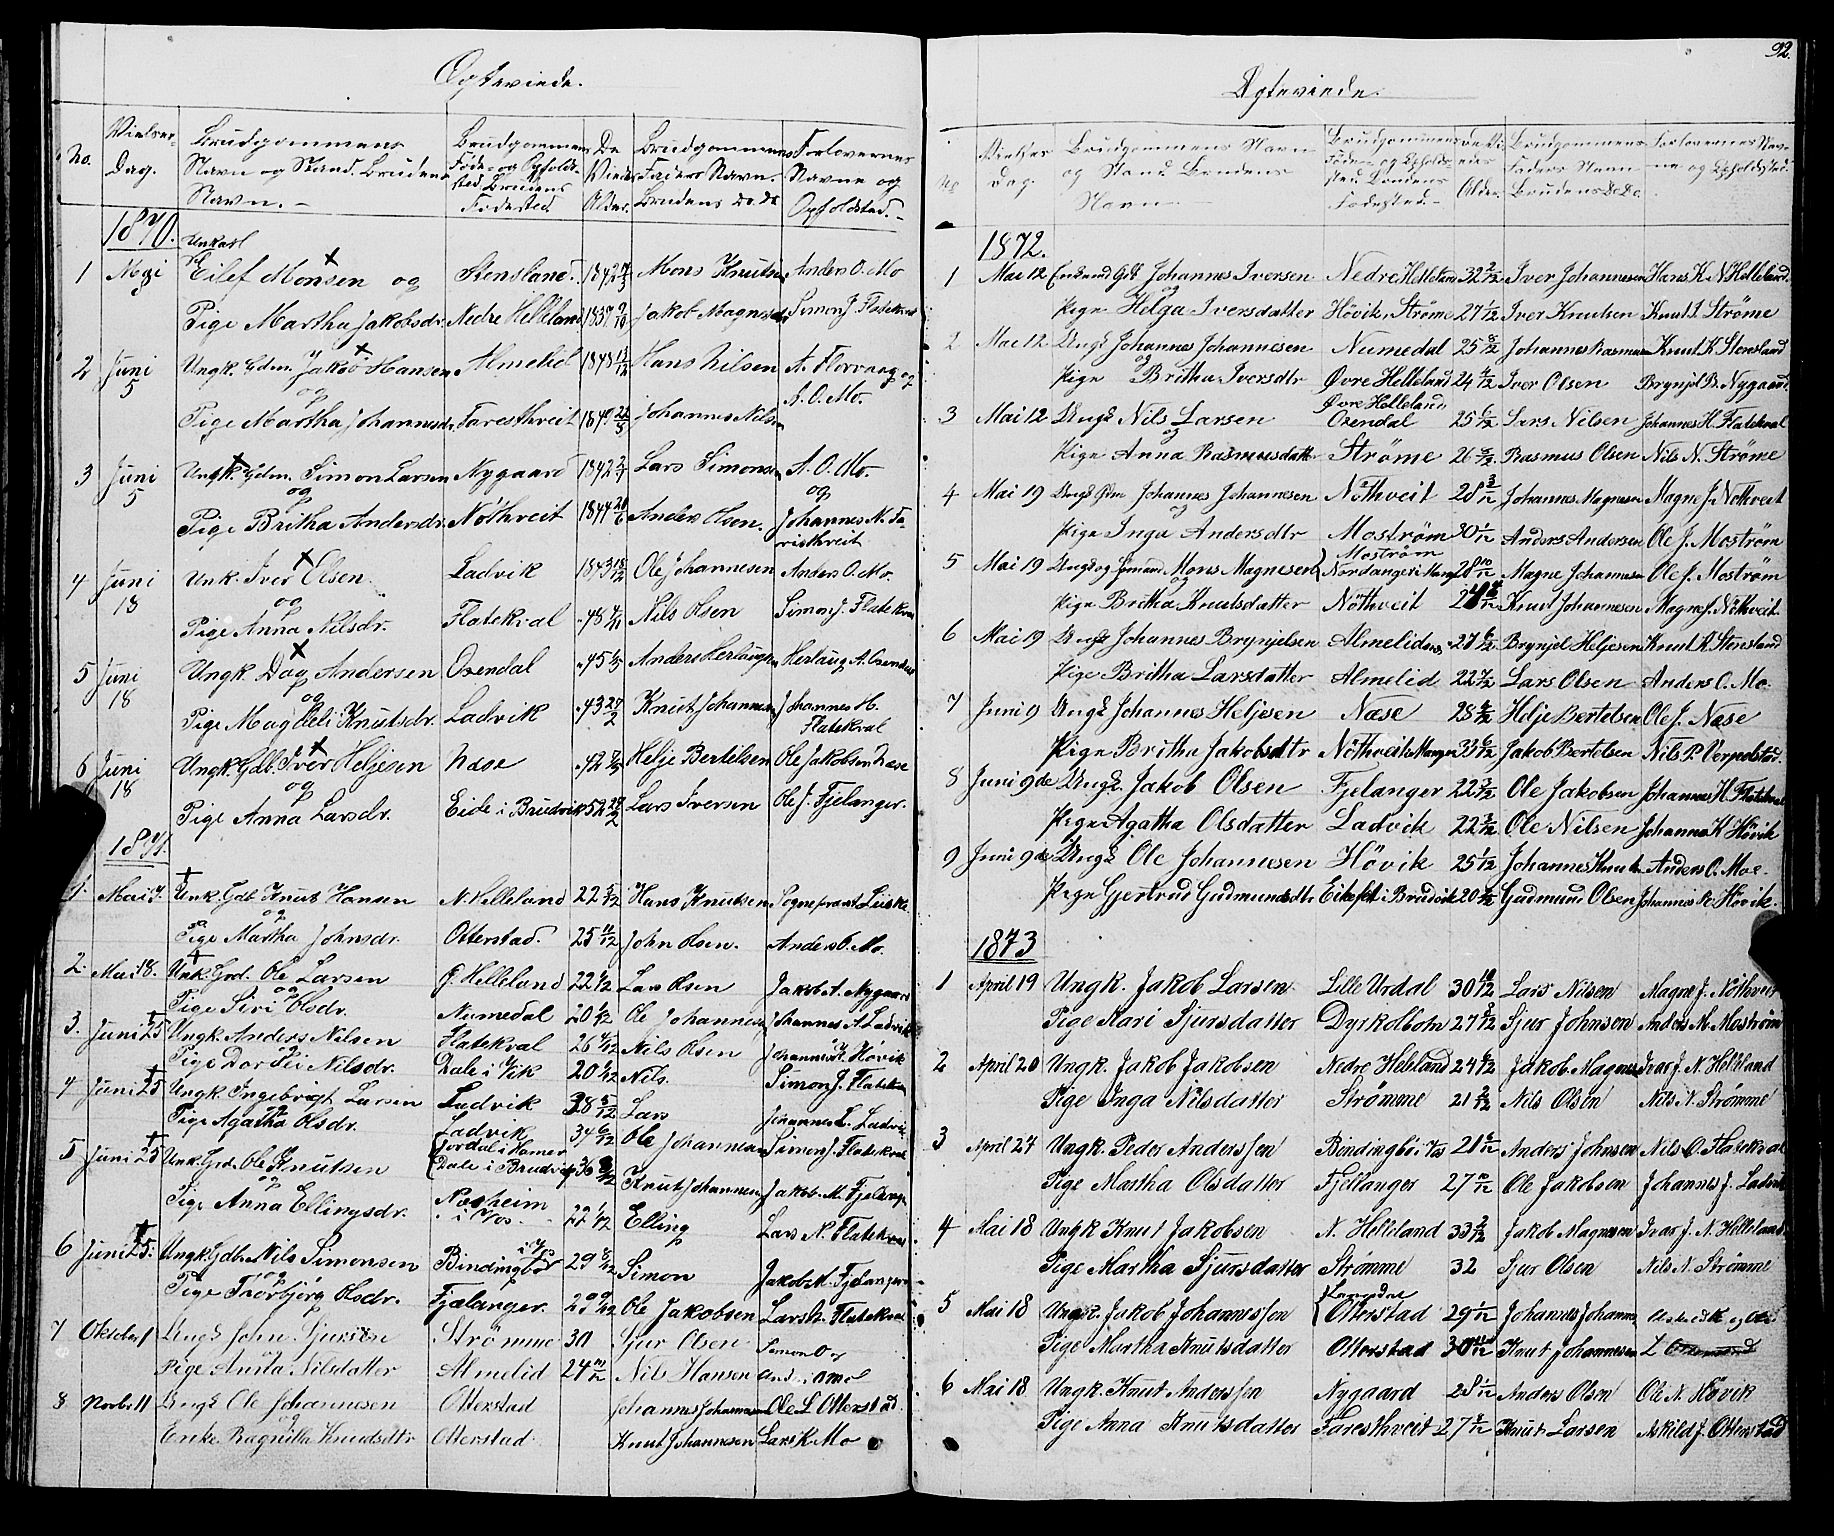 Ægteviede.
No.
Vielses-
Dag.
Brudgommens
Navn og Stand. Brudens
Navn. -
Brudgommens
Føde- og Opholds-
sted. Brudens
Fødested.
De
Viedes
Alder.
Brudgommens
Faders Navn.
Brudens do. do
Forlovernes
Navne og
Opholdsted. -
1870.
Unkarl
1 Mai Eilef Monsen og Stensland 1842 Mons Knutsen Anders O. Mo
Pige Martha Jakobsdr. Nedre Helleland 1837 Jakob Magnesen Simon J. Flatekval
2 Juni 5 Ungk. Gdm. Jakob Hansen Almelid 1848 Hans Nilsen A. Florvaag og
og
Pige Martha Johannesdr. Faresthveit 1849 Johannes Nilsen A. O. Mo.
3 Juni 5 Ungk. Gdm. Simon Larsen Nygaard 1842 Lars Simonsen A. O. Mo.
og
Pige Britha Andersdr. Nöthveit 1844 Anders Olsen. Johannes N. Fa-
resthveit
4 Juni 18 Unk. Iver Olsen Ladvik 1843 Ole Johannesen Anders O. Mo.
og
Pige Anna Nilsdr. Flatekval "48 Nils Olsen Simon J. Flatekval
5 Juni 18 Ungk. Dag Andersen Oxendal "45 Anders Herlaugsen Herlaug A. Oxendal
og
Pige Magdeli Knutsdr. Ladvik "43 Knut Johannesen Johannes H.
Flatekval
6 Juni 18 Ungk. Gdb. Iver Heljesen Næse "42 Helje Bertelsen Ole Jakobsen Næse
og
Pige Anna Larsdr. Eide i Brudvik 52 Lars Iversen Ole J. Fjelanger.
1871.
1. Mai 7. Unk. Gdb Knut Hansen N. Helleland 22 5/12 Hans Knutsen Sognepræst
og
Pige Martha Johnsdr. Otterstad. 25 11/12 John Olsen. Anders O. Mo.
2. Mai 18. Unk. Grd. Ole Larsen Ö. Helleland 22 Lars Olsen Jakob A. Nygaard
og
Pige Siri Olsdr. Numedal 20 Ole Johannesen Johannes A. Ladvik
3. Juni 25 Ungk. Anders Nilsen Flatekval 26 Nils Olsen Johannes K. Hövik
og
Pige Dordei Nilsdr. Dale i Vik 20 Nils. Simon J. Flatekval
4 Juni 25 Ungk. Ingebrigt Larsen Ladvik 38 5/12 Lars Johannes L. Ladvik
og
Pige Agatha Olsdr. Ladvik 34 6/12 Ole Johannesen Simon J. Flatekval
5 Juni 25 Unk. Grd. Ole Knutsen Jordal i Hamer
Dale i Brudvig 36 Knut Johannesen Jakob M. Fjelanger
og
Pige Anna Ellingsdr. Noeheim
i Vos. 22 1/12 Elling Lars N. Flatekval
6 Juni 25. Ungk. Gdb. Nils Simonsen Bindingbö i Vos 29 8/12 Simon Jakob M. Fjelanger
og
Pige Thorbjörg Olsdr. Fjælanger. 29 Ole Jakobsen Lars N. Flatekval
7 Oktober 1 Ungk John Sjursön Strömme 30 Sjur Olsen Simon O og
Pige Anna Nilsdatter Almelid 24 Nils Hansen
8 Novbr. 11 Ungk Ole Johannesen Otterstad Johannes Johannesen Ole L Otterstad.
og
Enke Ragnilla Knudsdtr Otterstad Knut Johannesen Lars K Mo
92.
Ægteviede.
No
Vielses
Dag.
Brudgommens Navn
og Stand Brudens
Navn
Brudgommens
Føde- og Opholds-
sted. Brudens
Fødested. -
de Vi-
edes
Alder.
Brudgommens
Faders Navn
Brudens Do Do.
Forlovernes Nav-
ne og Opholdsted.
1872.
1 Mai 12 Johannes Iversen Nedre Helleland 32 2/12 Iver Johannesen Hans K. N Helleland.
og
Pige Helga Iversdatter Hövik, Ströme 27 1/12 Iver Knutsen Knut I. Ströme
2 Mai 12 Ungk Johannes Johannesen Numedal 25 8/12 Johannes Rasmussen Knut K. Stensland
og
Pige Britha Iversdtr Øvre Helleland 24 4/12 Iver Olsen Brynjel B. Nygaard
3 Mai 12 Ungk Nils Larsen Øvre Helleland
Oxendal 25 6/12 Lars Nilsen Johannes H. Flatekval
og
Pige Anna Rasmusdatt Ströme 26 Rasmus Olsen Nils N. Ströme
4 Mai 19 Ungk Gdm Johannes Johannesen Nöthveit 28 3/12 Johannes Magnesen Magne J. Nöthveit
og
Pige Inga Andersdtr Moström 30 1/12 Anders Andersen Ole J. Moström
5 Mai 19 Ungk og Gdmand Mons Magnesen Moström
Nordanger i Manger 28 10/12 Magne Johannesen Ole J. Moström
og
Pige Britha Knutsdatter Nöthveit Knut Johannesen Magne J. Nöthveit
6 Mai 19 Ungk Johannes Brynjelsen Almelid 27 6/12 Brynjel Heljesen Knut K. Stensland
Pige Britha Larsdatter Almelid 22 Lars Olsen Anders O. Mo
7 Juni 9 Ungk Johannes Heljesen Næse 28 Helje Bertelsen Ole J. Næse
Pige Britha Jakobsdtr Nöthveit i Manger 33 6/12 Jakob Bertelsen Nils P. Verpelstad.
8 Juni 9de Ungk Jakob Olsen Fjelanger 22 3/12 Ole Jakobsen Johannes H. Flatekval
Pige Agatha Olsdatter Ladvik 22 3/12 Ole Nilsen Johannes K Hövik
9 Juni 9de Ungk Ole Johannesen Hövik 25 1/12 Johannes Knuts Anders O. Moe.
Pige Gjertrud Gudmundsdtr. Eikefet i Brudvik 20 Gudmund Olsen Johannes K. Hövik.
1873
1 April 19 Ungk. Jakob Larsen Lille Urdal 30 10/12 Lars Nilsen Magne J. Nöthveit
Pige Kari Sjursdatter Dyrkolbotn 27 Sjur Johnsen Anders M. Moström
2 April 20 Ungk. Jakob Jakobsen Nedre Helleland 24 Jakob Magnesen Ivar J. N. Helleland
Pige Inga Nilsdatter Strömme 21 2/12 Nils Olsen Nils N. Strömme
3 April 27 Ungk. Peder Anderssen Bindingbö i Vos 21 6/12 Anders Johnsen Nils O. Flatekval
Pige Martha Olsdatter Fjellanger 27 Ole Jakobsen Johannes J. Ladvik
4 Mai 18 Ungk Knut Jakobsen N. Helleland 33 2/12 Jakob Magnesen Ivar J. N. Helleland
Pige Martha Sjursdatter Strömme 32 Sjur Olsen Nils N. Strömme
5 Mai 18 Ungk. Jakob Johannessen Otterstad 29 Johannes Johannes Askild K og Ole
Pige Martha Knutsdatter Otterstad 30 Knut Johannesen L Otterstad
6 Mai 18 Ungk. Knut Anderssen Nygaard 28 1/12 Anders Olsen Ole N. Hövik
Pige Anna Knutsdatter Faresthveit 27 Knut Larsen Askild J. Otterstad